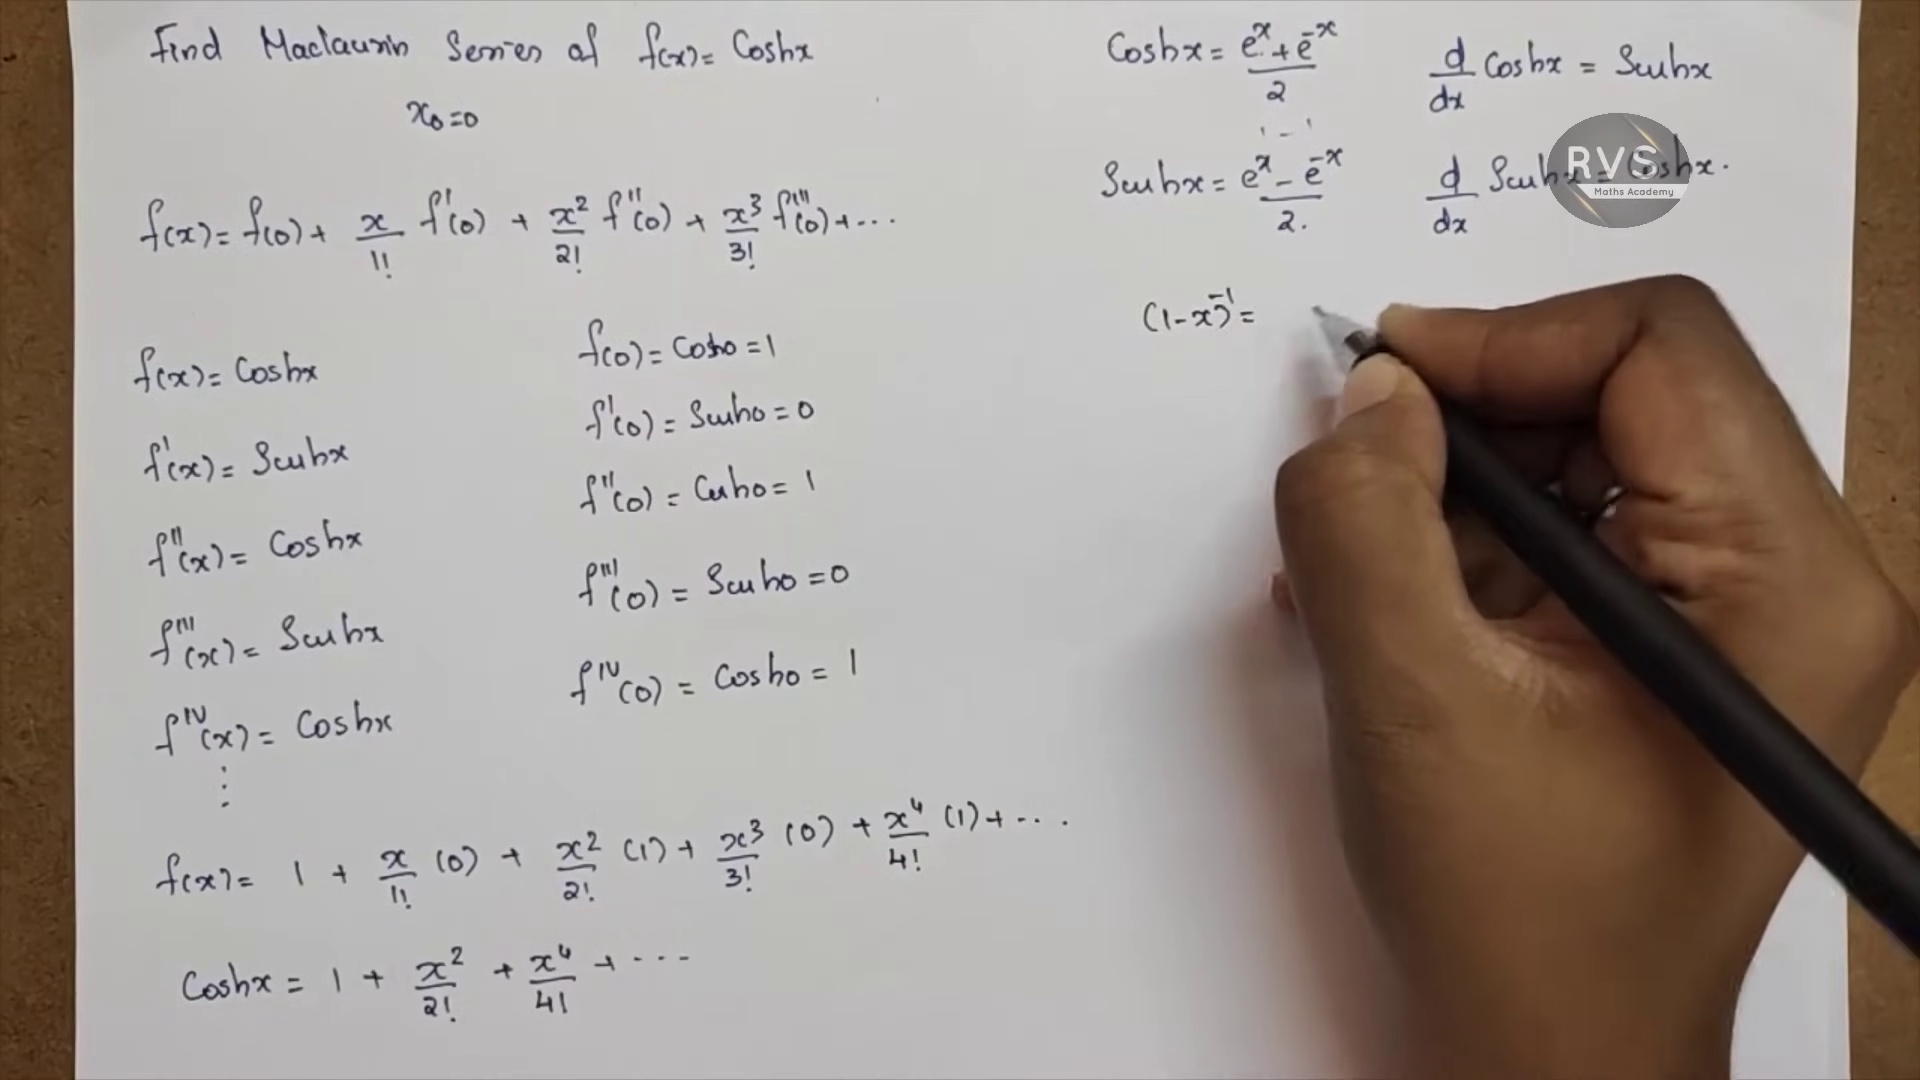 Find Maclaurin Series of f(x) = Coshx
x₀=0
f(x) = f(0) + x/1! f'(0) + x²/2! f''(0) + x³/3! f'''(0) + ...
f(x) = Coshx
f'(x) = Sinhx
f''(x) = Coshx
f'''(x) = Sinhx
f^IV(x) = Coshx
⋮
f(0) = Cosh0 = 1
f'(0) = Sinh0 = 0
f''(0) = Cosh0 = 1
f'''(0) = Sinh0 = 0
f^IV(0) = Cosh0 = 1
f(x) = 1 + x/1! (0) + x²/2! (1) + x³/3! (0) + x⁴/4! (1) + ...
Coshx = 1 + x²/2! + x⁴/4! + ...
Coshx = (e^x + e^-x)/2
1 - 1
Sinhx = (e^x - e^-x)/2.
d/dx Coshx = Sinhx
d/dx Sinhx = Coshx.
(1-x)^-1 =
RVS
Maths Academy